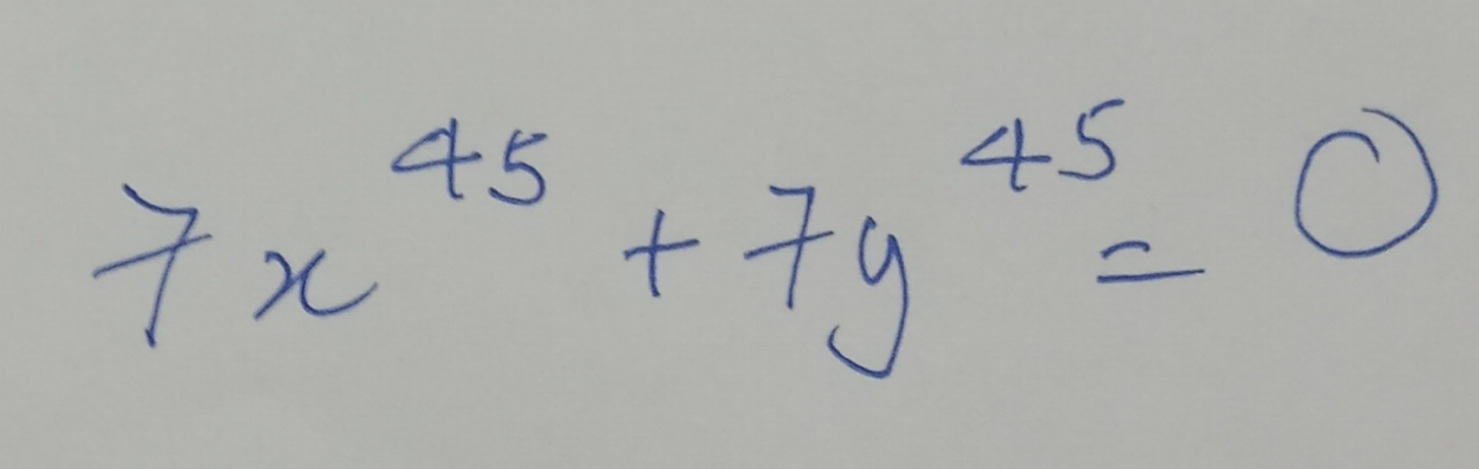 7x^45 + 7y^45 = 0